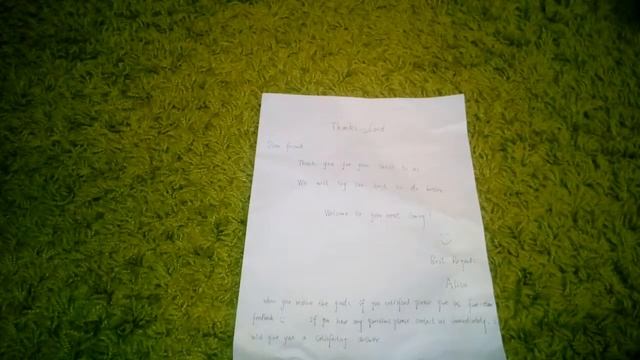 Thanks Card
Dear friend
Thank you for you to us
We will try our best to do better
Welcome to you next coming!
Best Regards
Alice
when you receive the goods if you satisfied please give us five-star
feedback if you have any questions please contact us immediately
will give you a satisfying answer